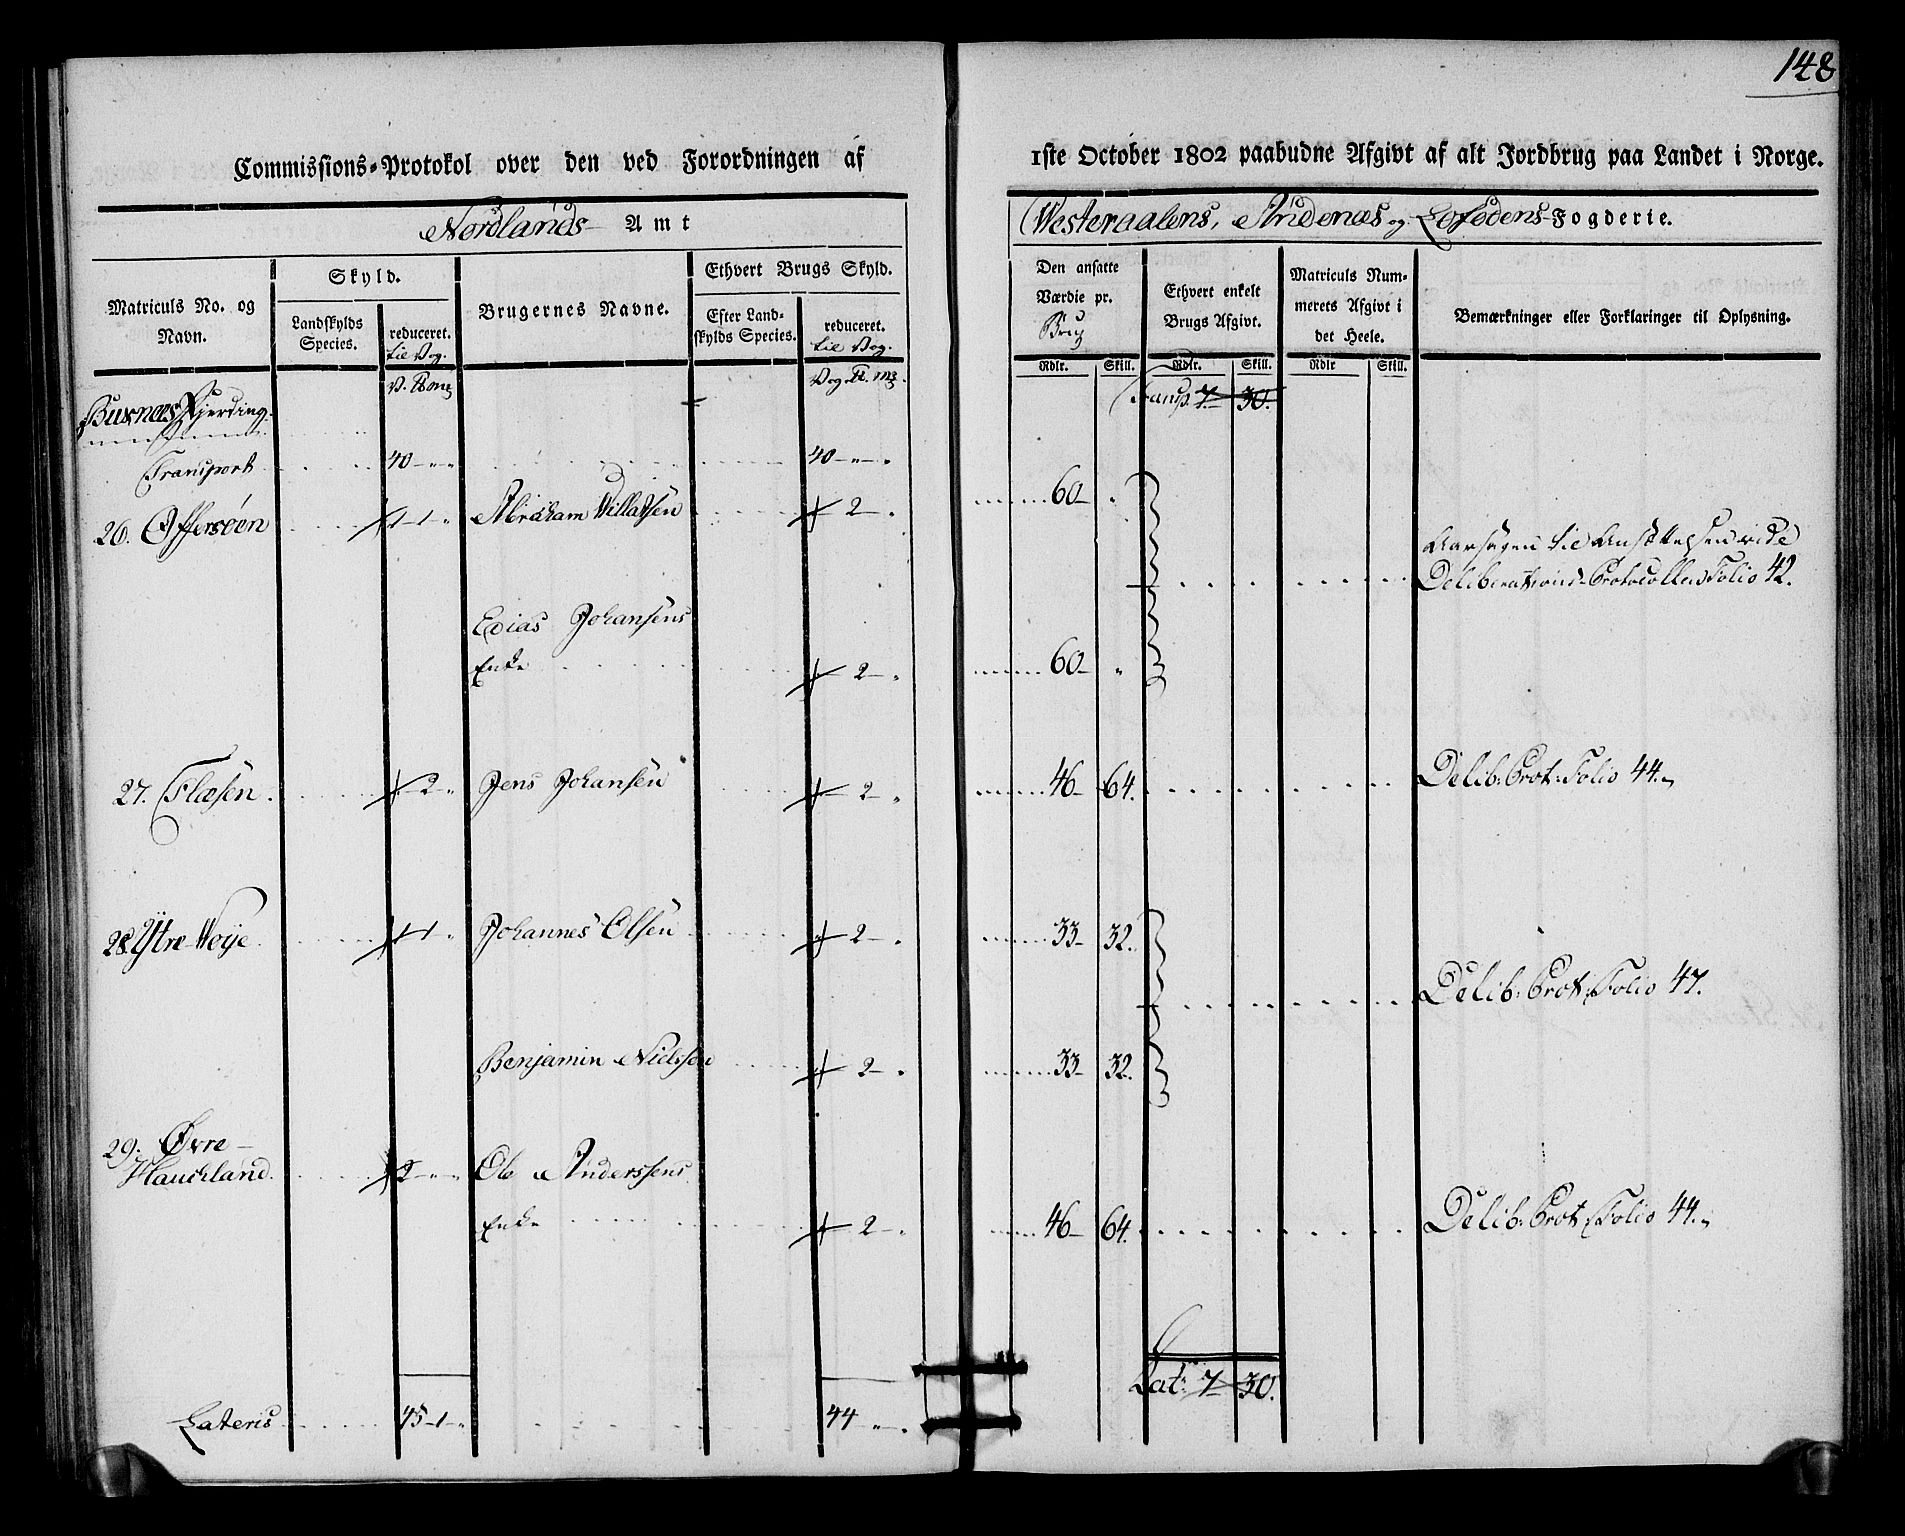 148
Commissions-Protokol over den ved Forordningen af
1ste October 1802 paabudne Afgivt af alt Jordbrug paa Landet i Norge.
Nordlands Amt
Westeraalens, Andenæs og Lofodens Fogderie.
Matriculs No. og Navn.
Skyld.
Landskylds Species.
reduceret. til Vog.
Brugernes Navne.
Ethvert Brugs Skyld.
Efter Landskylds Species.
reduceret. til Vog.
Den ansatte Værdie pr. Brug
Ethvert enkelt Brugs Afgivt.
Matriculs Nummerets Afgivt i det Heele.
Bemærkninger eller Forklaringer til Oplysning.
Rdlr. Skill. Rdlr. Skill. Rdlr Skill.
Buxnæs Fjerding
Transp. 7 30.
Transport 40 - " - " 40 - " - "
26. Offersøen 1 - 1 - " Abraham Willatsen 2 - " 60 - "
Aarsagen til Ansættelsen vide
Deliberations-Protocollen Folio 42.
Johansens
Enke 2 - " 60 - "
27. Flæsen 2 - " Jens Johansen 2 - " 46 - 64. Delib: Prot: Folio 44.
28. Ytre Woye 1 - 1 - " Johannes Olsen 2 - " 33 - 32.
Delib: Prot: Folio 47.
Benjamin Nielsen 2 - " 33 - 32.
29. Øvre-
Hauckland 2 - " Ole Anderssens
Enke 2 - " 46 - 64. Delib: Prot: Folio 44.
Lat: 7 - 30.
Lateris 45 - 1 - " 44 - " - "